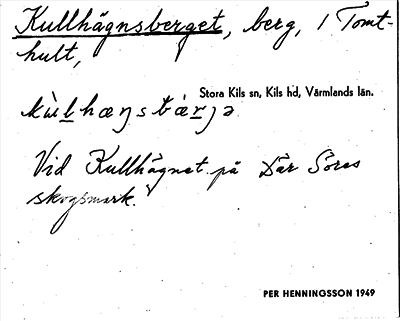 Kullhägnsberget, berg, i Tomt-
hult,
Stora Kils sn, Kils hd, Värmlands län.
kùlhæŋsbærjə
Vid Kullhägnet på Där Sores
skogsmark.
PER HENNINGSSON 1949